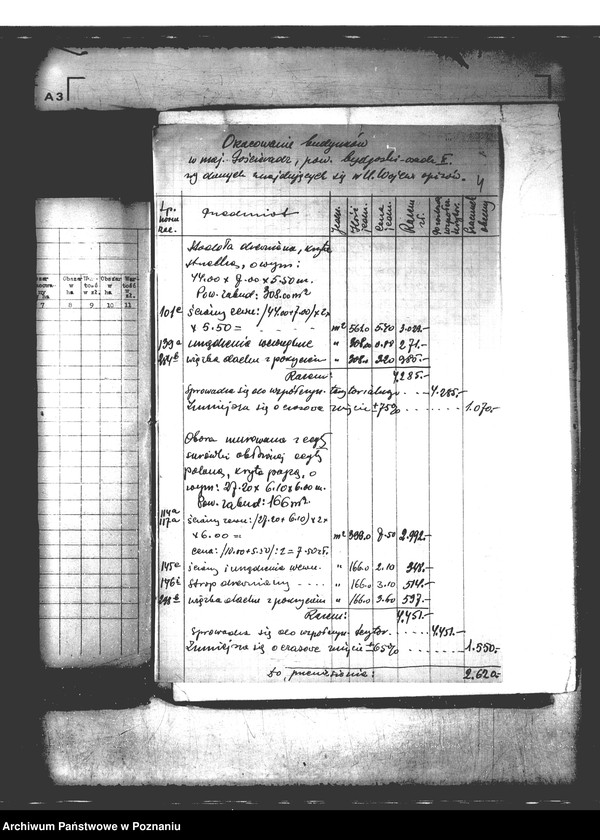 A3
Oszacowanie budynków
w maj. Gościeradz, pow. bydgoski
wg danych znajdujących się w opisów.
4
L.p. norm szac.
Przedmiot
Jedn.
Ilość jedn.
Cena jedn.
Razem zł.
Szacunek obecny
Obszar w ha
Obszar w ha
Wartość w zł.
7 8 9 10 11
Stodoła drewniana, kryta
strzechą, o wym:
44.00 x 7.00 x 5.50 m.
Pow. zabud: 308.00 m²
101c ściany zewn: /44.00+7.00/x2x
x 5.50 = m² 561.0 5.40 3.029.-
139a urządzenie wewnętrzne " 308.00 0.88 271.-
wiązka dachu z pokryciem " 308.0 3.20 985.-
Razem: 4.285.-
Sprowadza się do współczyn. terytorialnego 4.285.-
Zmniejsza się o czasowe zużycie ± 75% 1.070.-
Obora murowana z cegły
surówki obłożonej cegłą
paloną, kryta papą, o
wym: 27.20 x 6.10 x 6.00 m.
Pow. zabud: 166 m²
114a
117a ściany zewn: /27.20 + 6.10/x2x
x 6.00 = m² 399.0 7.50 2.992.-
cena: /10.00+5.50/:2 = 7.50 zł.
145a ściany i urządzenia wewn. " 166.0 2.10 348.-
146i Strop drewniany " 166.0 3.10 514.-
wiązka dachu z pokryciem " 166.0 3.60 597.-
Razem: 4.451.-
Sprowadza się do współczyn. terytor. 4.451.-
Zmniejsza się o czasowe zużycie ± 65% 1.550.-
do przeniesienia: 2.620.-
Archiwum Państwowe w Poznaniu